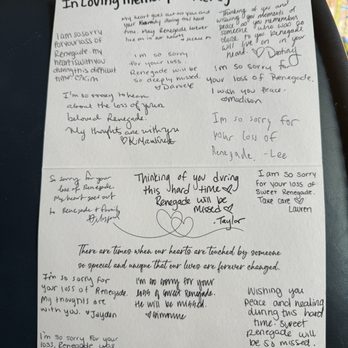 In Loving
I am so sorry
for your loss of
Renegade. my
heart is with you
during this difficult
time. ♡Kim
My heart goes out to you and
your family during this hard
time. May Renegade
I'm so sorry
for your loss.
Renegade will be
so deeply missed.
Thinking of you and
wishing you moments of
you remember
someone who was so
close to you. Renegade
will live on in your
heart. ♡
I'm so sorry to hear
about the loss of your
beloved Renegade.
My thoughts are with you
I am so sorry for
your loss of Renegade.
I wish you peace.
-Madison
I'm so sorry for
your loss of
Renegade. -Lee
So sorry for your
loss of Renegade.
My heart goes out
to Renegade's family
Thinking of you during
this hard time ♡
Renegade will be
missed ♡
-Taylor
I am so sorry
for your loss of
Sweet Renegade.
Take care ♡
Lauren
There are times when our hearts are touched by someone
so special and unique that our lives are forever changed.
I'm so sorry for
your loss of Renegade.
My thoughts are
with you. ♡ Jayden
I'm so sorry for your
loss of sweet Renegade.
He will be missed.
Wishing you
peace and healing
during this hard
time. Sweet
Renegade will
be so missed.
I'm so sorry for your
loss. Renegade was